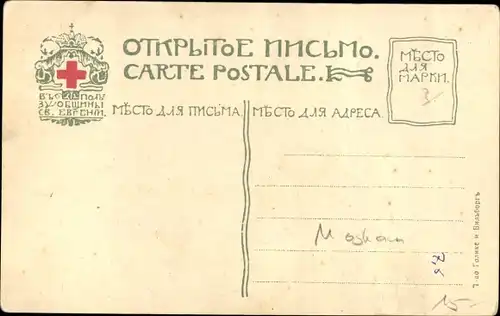 ОТКРЫТОЕ ПИСЬМО.
CARTE POSTALE.
МѢСТО
ДЛЯ
МАРКИ.
3
ВЪ ПОЛЬ
ЗУ ОБЩИНЫ
СВ. ЕВГЕНІИ.
МѢСТО ДЛЯ ПИСЬМА.
МѢСТО ДЛЯ АДРЕСА.
Т-во Голике и Вильборгъ
15-